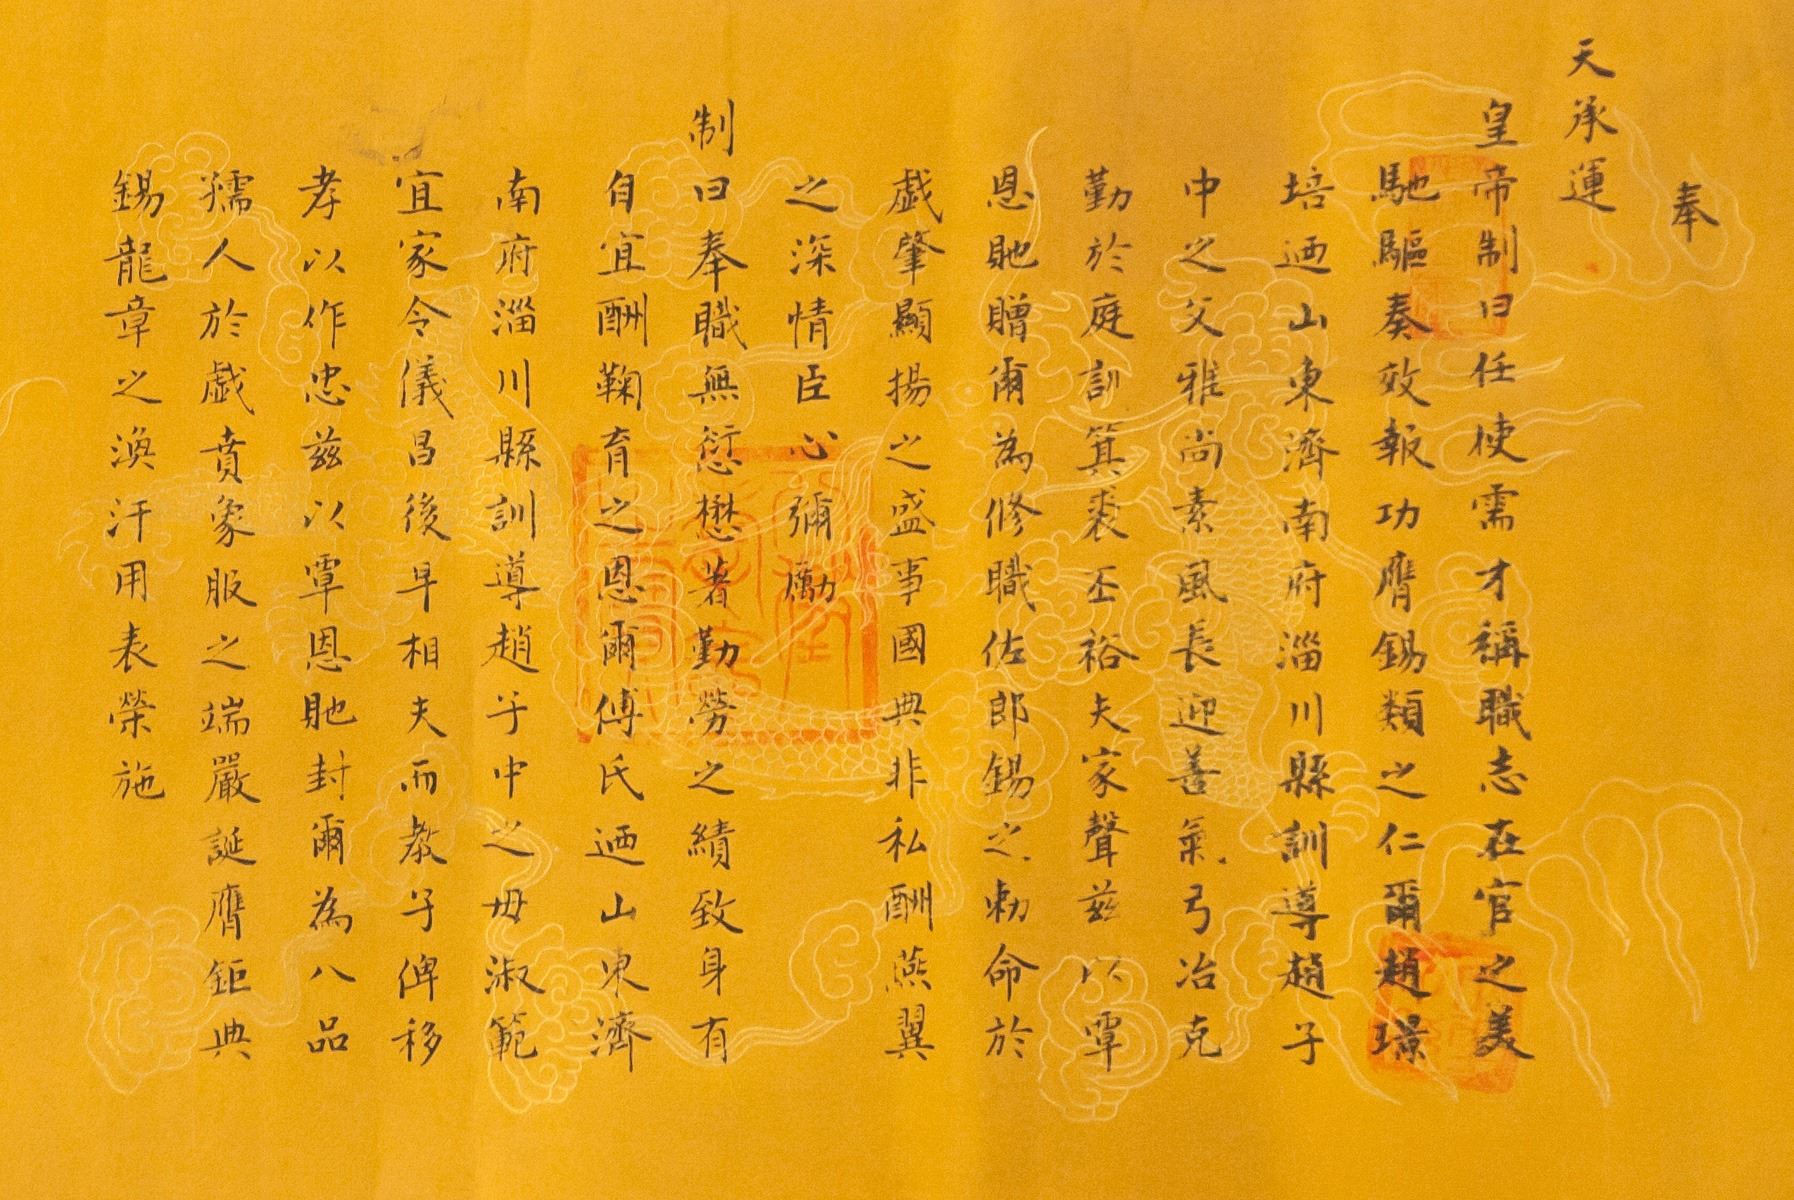 奉
天承運
皇帝制曰任使需才稱職志在官之美
馳驅奏效報功膺錫類之仁爾趙璟
培迺山東濟南府淄川縣訓導趙子
中之父雅尚素風長迎善氣弓冶克
勤於庭訓箕裘丕裕夫家聲茲以覃
恩貤贈爾為修職佐郎錫之勅命於
戲肇顯揚之盛事國典非私酬燕翼
之深情臣心彌勵
制曰奉職無愆懋著勤勞之績致身有
自宜酬鞠育之恩爾傅氏迺山東濟
南府淄川縣訓導趙子中之母淑範
宜家令儀昌後早相夫而教子俾移
孝以作忠茲以覃恩貤封爾為八品
孺人於戲賁象服之端嚴誕膺鉅典
錫龍章之渙汗用表榮施